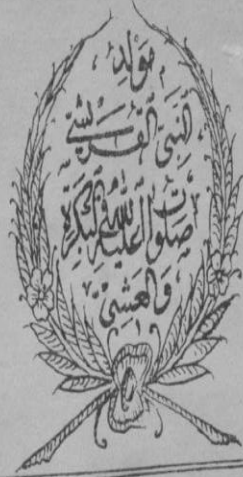 مولد
النبي القريشي
صلوات الله عليه البكرة
والعشي